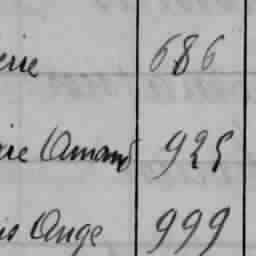 erie 686
ire Amand 925
is Ange 999